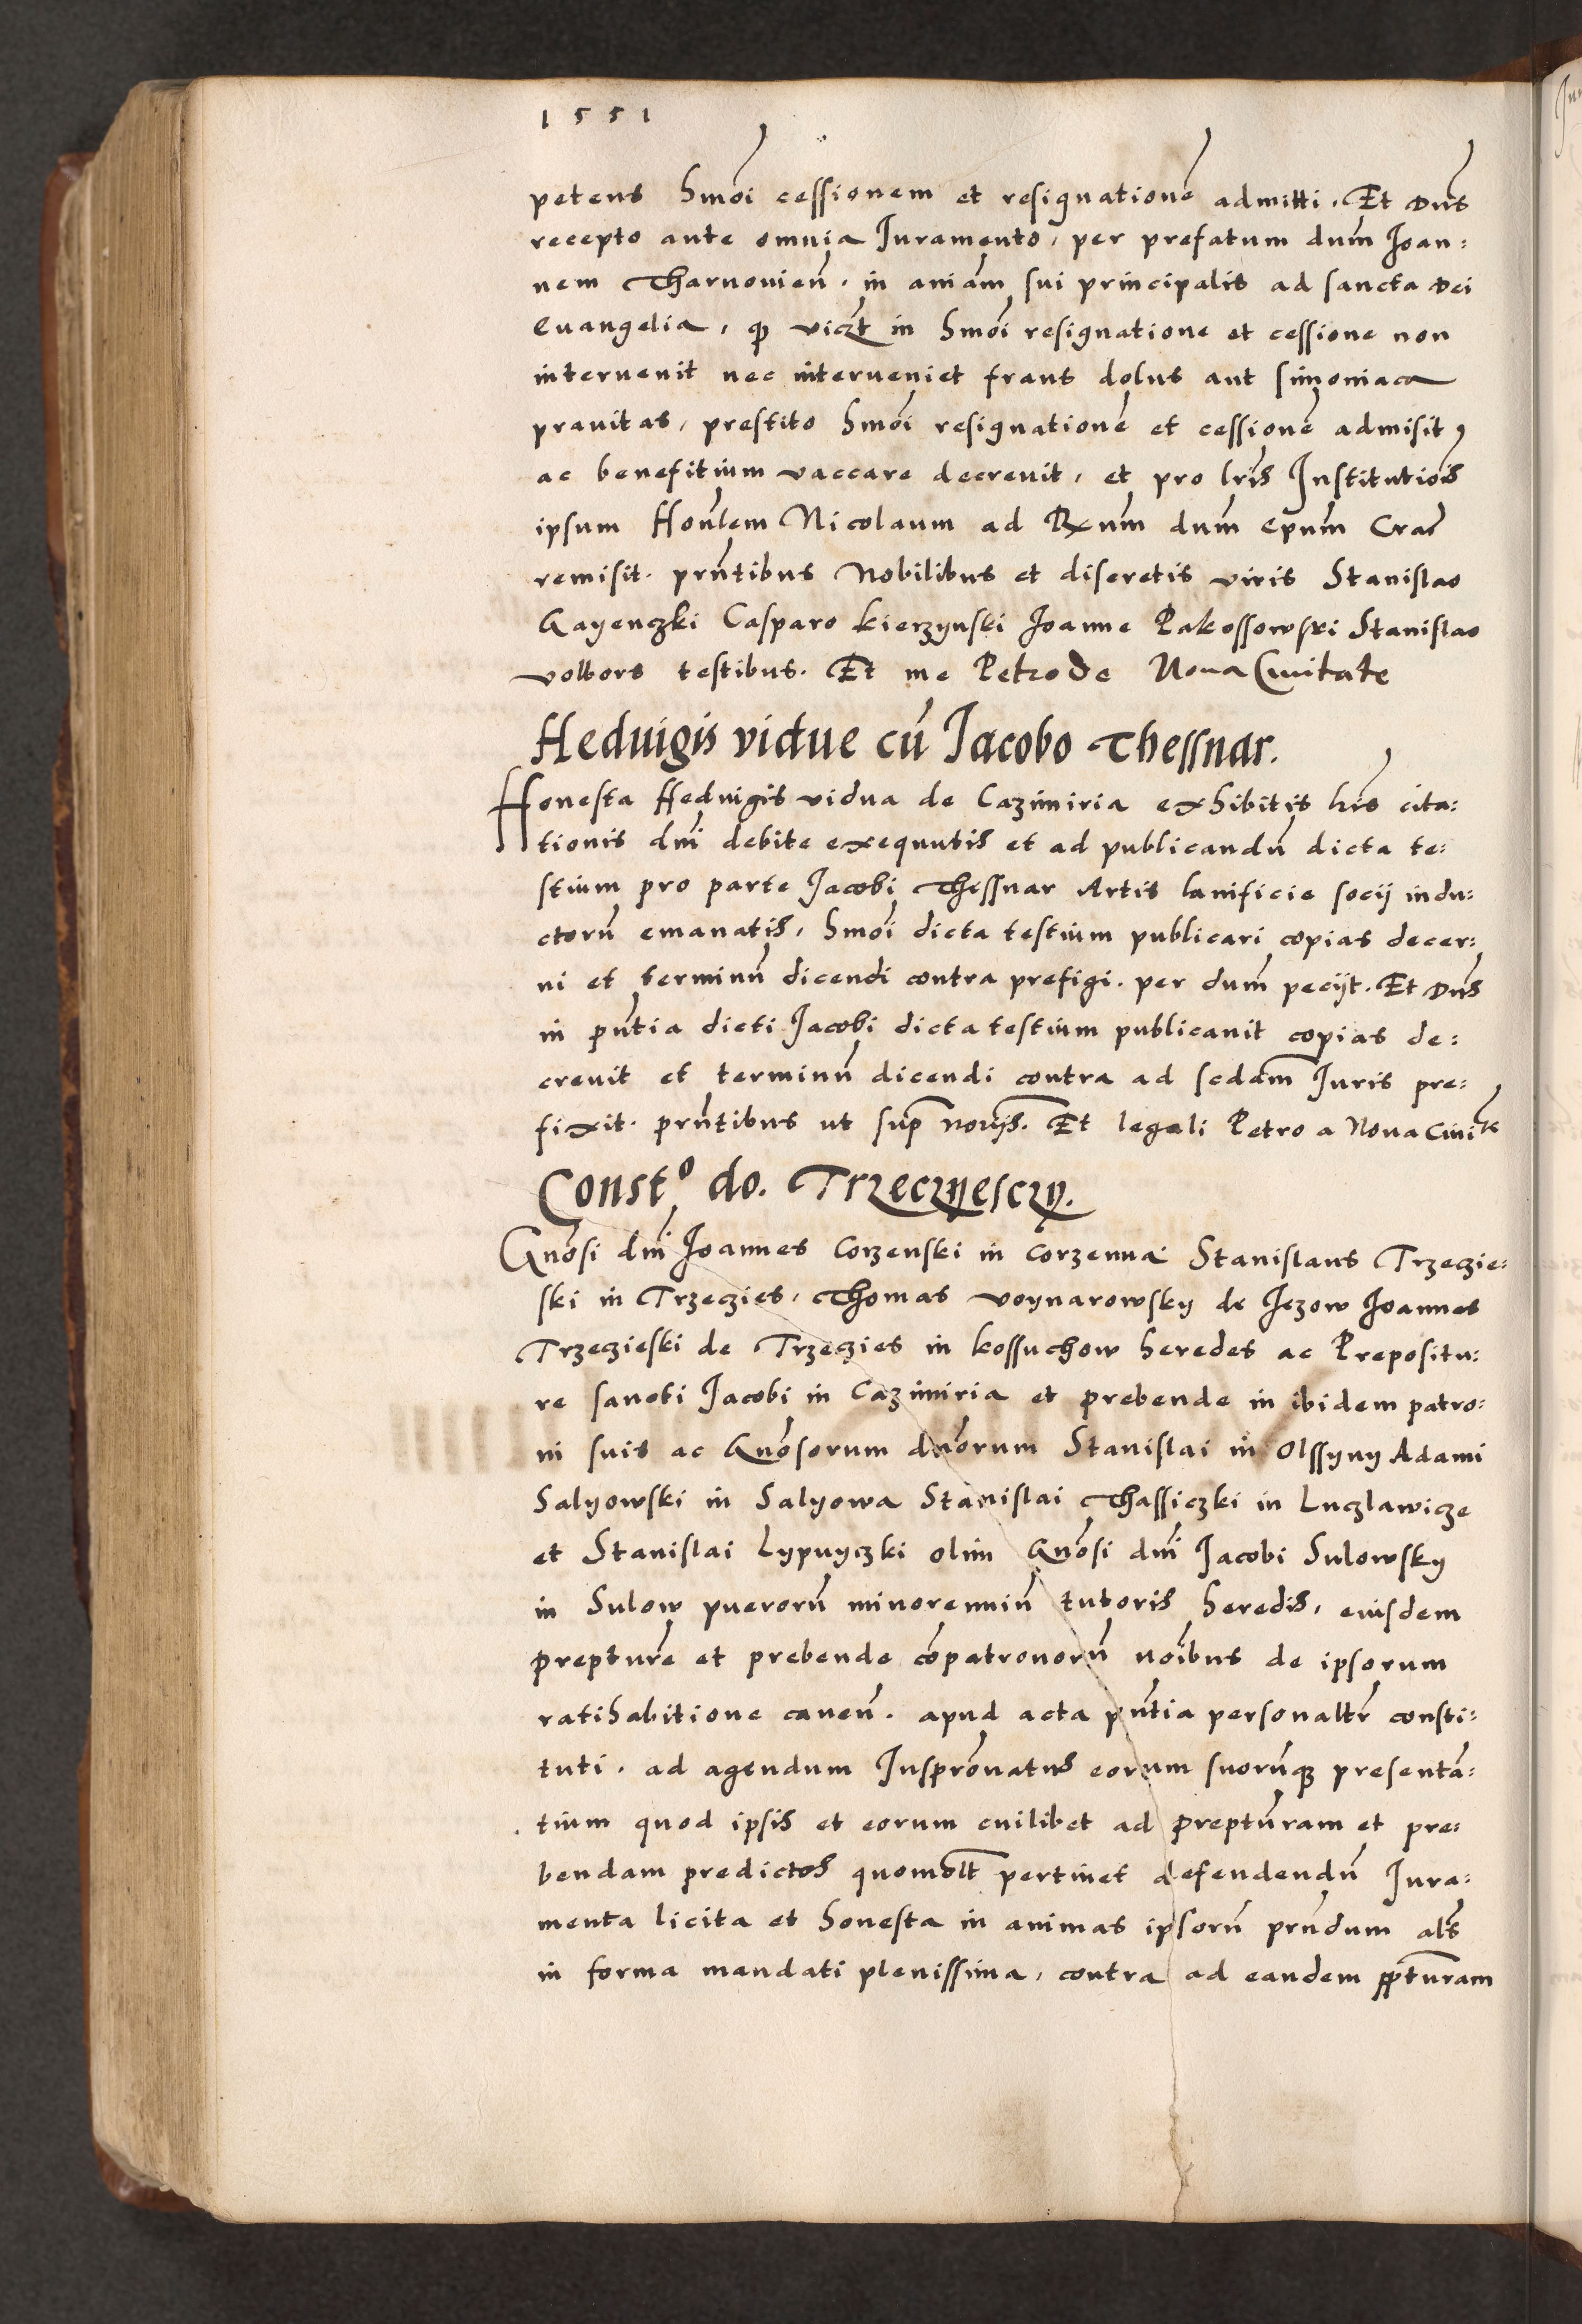 1551
petens hmōi cessionem et resignationē admitti. Et Dns̄
recepto ante omnia Iuramento, per prefatum dnm̄ Ioan:
nem Tharnovien̄. in aniām sui principalis ad sancta Dei
Evangelia, ꝙ viczt in hmōi resignatione et cessione non
intervenit nec interveniet fraus dolus aut simoniaca
pravitas, prestito hmōi resignationē et cessionē admisit,
ac benefitium vaccare decrevit, et pro lris̄ Institutiōis
ipsum Honlem̄ Nicolaum ad Rx̄um dnm̄ Epum̄ Crac̄
remisit. prn̄tibus Nobilibus et discretis viris Stanislao
Gayenczki Casparo kierzynski Ioanne Rakossowski Stanislao
volbors testibus. Et me Petro de Nova Civitate
Hedvigis vidue cū Iacobo Thessnar.
Honesta Hedvigis vidua de Cazimiria exhibitis lrīs cita:
tionis dnī debite exequutis et ad publicandū dicta te:
stium pro parte Iacobi Thessnar Artis lanificie socij indu:
ctorū emanatis, hmōi dicta testium publicari copias decer:
ni et terminū dicendi contra prefigi. per dnm̄ pecijt. Et Dns̄
in pn̄tia dicti Iacobi dicta testium publicavit copias de:
crevit et terminū dicendi contra ad scdam̄ Iuris pre:
fixit. prn̄tibus ut sup̄ norijs̄. Et legali Petro a Nova Civite
Constᵒ do. Trzeczyesczy.
Gnōsi dnī Ioannes Corzenski in Corzenna Stanislaus Trzeczie:
ski in Trzeczies, Thomas voynarowsky de Jezow Ioannes
Trzeczieski de Trzeczies in kossuchow heredes ac Prepositu:
re sancti Iacobi in Cazimiria et prebende in ibidem patro:
ni suis ac Gnōsorum dnōrum Stanislai in Olssyny Adami
Salyowski in Salyowa Stanislai Thassiczki in Luczlawicze
et Stanislai Lypnyczki olim Gnōsi dnī Iacobi Sulowsky
in Sulow puerorū minorenniū tutoris heredis, eiusdem
prepturē et prebende cōpatronorū noībus de ipsorum
ratihabitione caven̄. apud acta pn̄tia personaltr̄ consti:
tuti. ad agendum Iusprōnatus eorum suorūqꝫ presentā:
tium quod ipsis et eorum cuilibet ad prepturam̄ et pre:
bendam predictos quomolt̄ pertinet defendendū Iura:
menta licita et honesta in animas ipsorū prn̄dum als̄
in forma mandati plenissima, contra ad eandem ppt̄uram